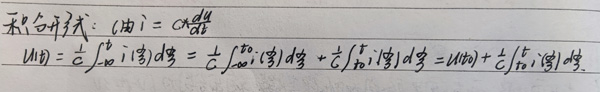 积分形式：(由 i = C*du/dt
u(t) = 1/C ∫_{-∞}^{t} i(ξ)dξ = 1/C ∫_{-∞}^{t0} i(ξ)dξ + 1/C ∫_{t0}^{t} i(ξ)dξ = u(t0) + 1/C ∫_{t0}^{t} i(ξ)dξ.